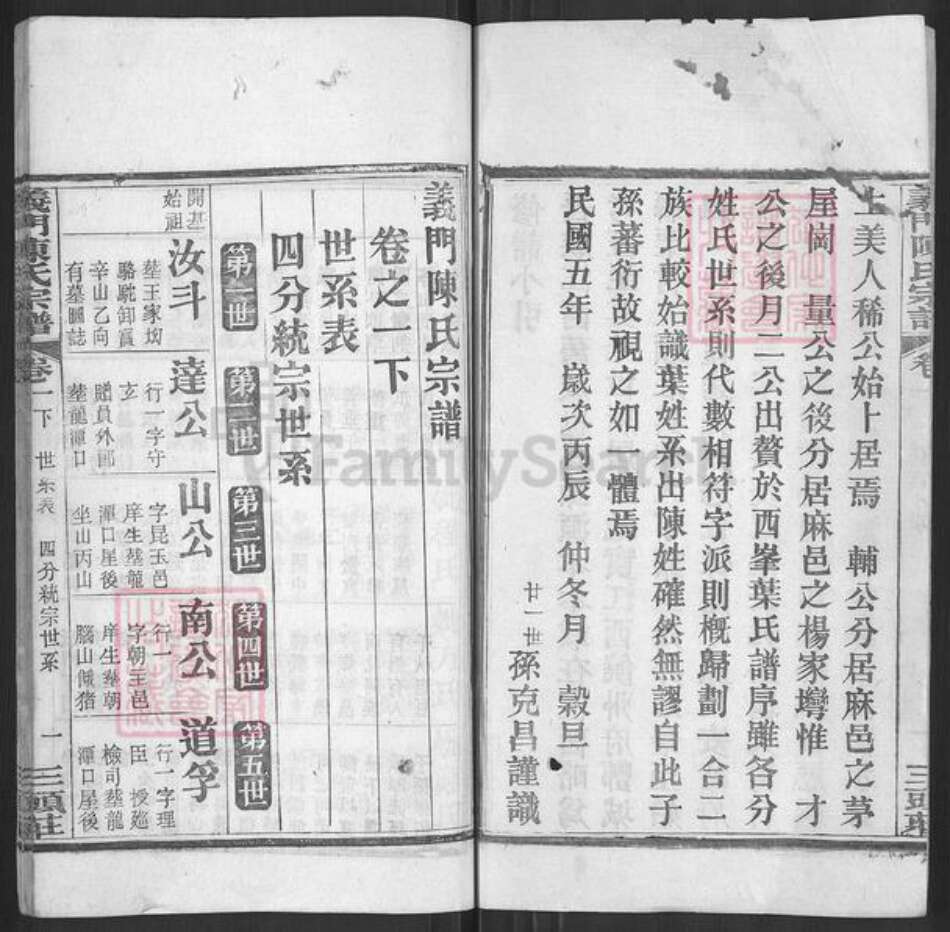 義門陳氏宗譜
卷
三頭莊
上美人稀公始卜居焉 輔公分居麻邑之茅
屋崗 量公之後分居麻邑之楊家塆惟 才
公之後月二公出贅於西峯葉氏譜序雖各分
姓氏世系則代數相符字派則概歸劃一合二
族比較始識葉姓系出陳姓確然無謬自此子
孫蕃衍故視之如一體焉
民國五年 歲次丙辰 仲冬月 穀旦
廿一世孫克昌謹識
義門陳氏宗譜
卷之一下
世系表
四分統宗世系
第一世 第二世 第三世 第四世 第五世
開基
始祖
汝斗
塟王家坳
駱駝卸寶
辛山乙向
有墓圖誌
達公
行一字守
玄
贈員外郎
塟龍潭口
山公
字昆玉邑
庠生塟龍
潭口屋後
坐山丙山
南公
行一
字朝王邑
庠生塟朝
腦山
道孚
行一字理
臣 授廵
檢司塟龍
潭口屋後
義門陳氏宗譜
卷一下
世系表
四分統宗世系
一
三頭莊
FamilySearch